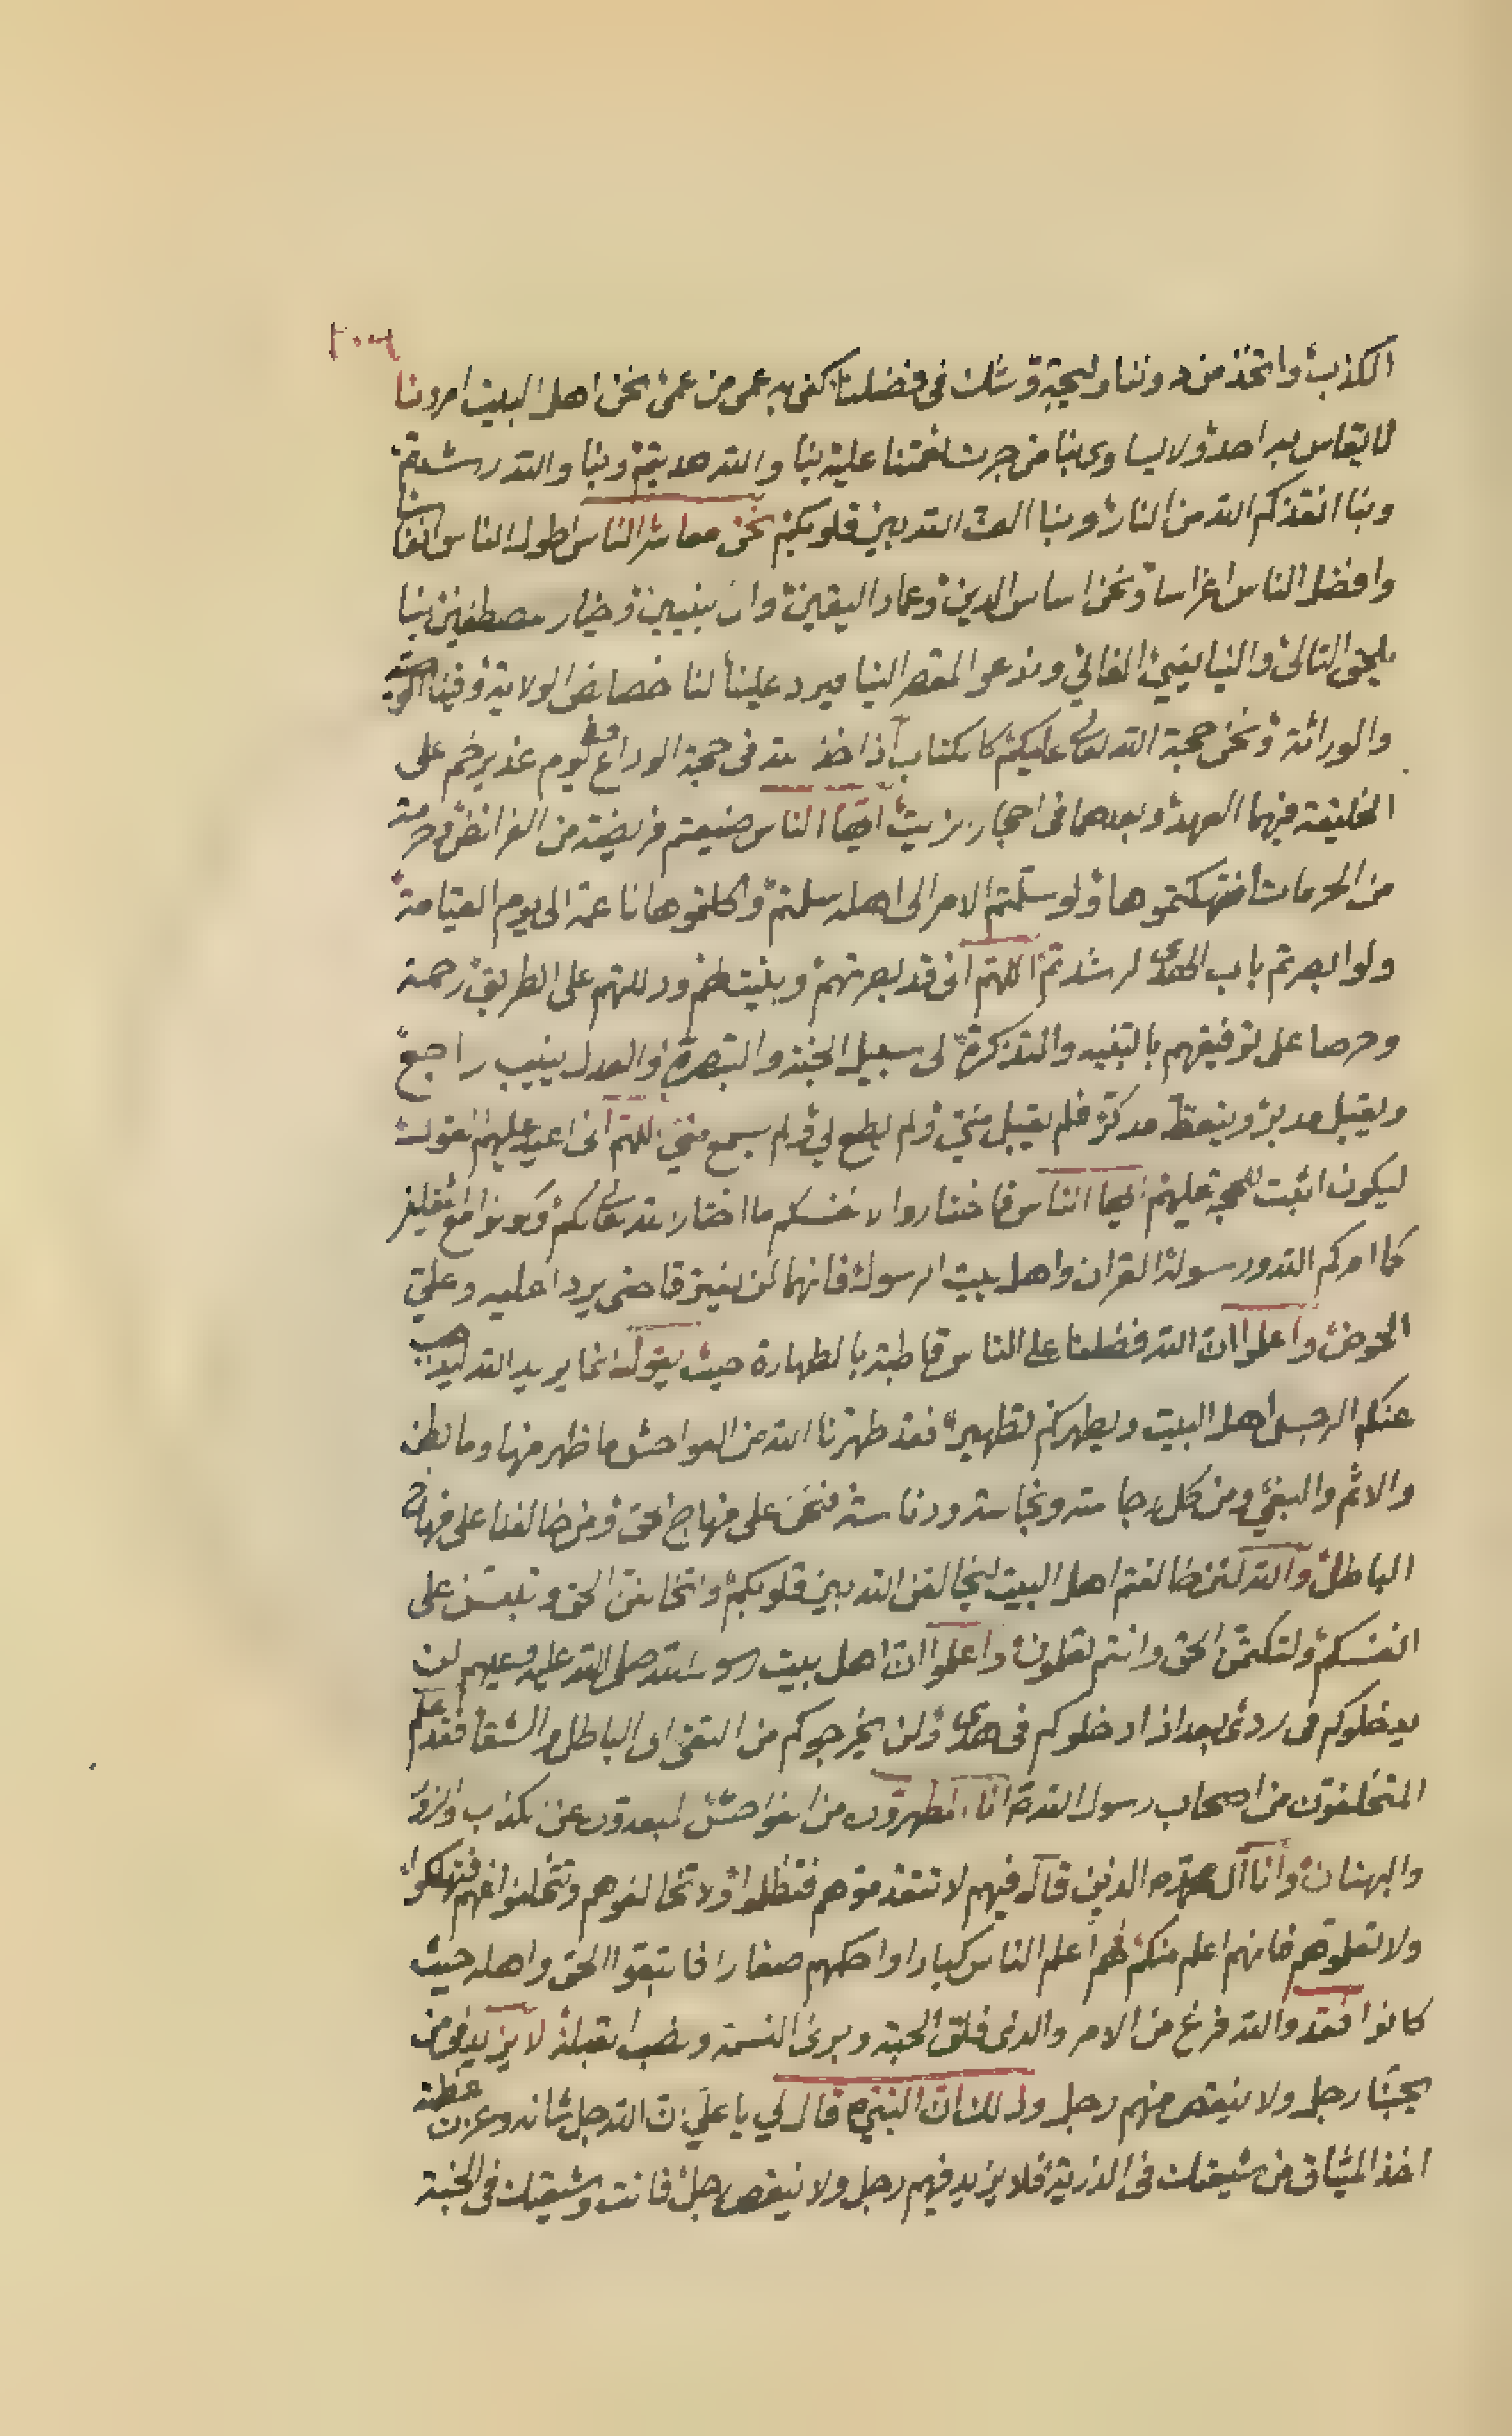 الكذب واتخذ من دوننا وليجة وشك فى فضلنا كفى به عمى من عمى نحن اهل البيت امرونا
لا يقاس به احد ولا يساوى بنا من جرت نعمتنا عليه بنا والله هديتم وبنا والله رشدتم
وبنا انقذكم الله من النار وبنا الف الله بين قلوبكم نحن معاشر الناس اطول الناس
وافضل الناس اغراسا ونحن اساس الدين وعماد اليقين وان بنيين وخيار مصطفين بنا
يلحق التالى والينا يفىء الغالي وندعو المقصر الينا فيرد علينا لنا خصائص الولاية وفينا الوصية
والوراثة ونحن حجة الله تعالى عليكم كا بكتاب اذ اخذ الله فى حجة الوداع يوم غدير خم على
الخليفة فيهما العهد وبعدهما فى احجار زيت ايها الناس ضيعتم فريضة من الفرائض وحرمة
من الحرمات انتهكتموها ولو سلمتم الامر الى اهله سلمتم واكلتموها ناعمة الى يوم القيامة
ولو ابصرتم باب الهدى لرشدتم اللهم انى قد بصرتهم وبينت لهم ودللتهم على الطريق رحمة
وحرصا على توفيقهم بالتنبيه والتذكرة لى سبيل الجنة والتبصرة والعدل ينيب راجع
ويقبل مدبر ويتعظ مدكر فلم يقبل منى ولم يطع لي ولم يسمع منى اللهم انى اعيد عليهم القول
ليكون اثبت للحجة عليهم ايها الناس فاختاروا لانفسكم ما اختار الله تعالى لكم وكونوا مع
كما امركم الله ورسوله القران واهل بيت الرسول فانهما لن يفترقا حتى يردا عليه وعلى
الحوض واعلموا ان الله فضلنا على الناس قاطبة بالطهارة حيث يقول انما يريد الله ليذهب
عنكم الرجس اهل البيت ويطهركم تطهيرا فقد طهرنا الله من الفواحش ما ظهر منها وما بطن
والاثم والبغى ومن كل رجاسة ونجاسة ودناسة فنحن على منهاج الحق ومن خالفنا على منهاج
الباطل والله لئن خالفتم اهل البيت ليخالفن الله بين قلوبكم ولتخالفن الحق وتلبسن على
انفسكم ولتكتمن الحق وانتم تعلمون واعلموا ان اهل بيت رسول الله صلى الله عليه وعليهم لن
يدخلوكم فى ردى بعد اذ ادخلوكم فى هدى ولن يخرجوكم من التقى الى الباطل والشقا فقد علم
المتخلفون من اصحاب رسول الله ص انا المطهرون من الفواحش لبعدون عن بكذب والزور
والبهتان وانا آل محمد ص الذين قال فيهم لا تتقدموهم فتظلموا ولا تخالفوهم وتتخلفوا عنهم فتهلكوا
ولا تعلموهم فانهم اعلم منكم هم اعلم الناس كبارا واحكمهم صغارا فاتبعوا الحق واهله حيث
كانوا فقد والله فرغ من الامر والذى فلق الحبة وبرى النسمة ونصب القبلة لا يزيد فى من
يحبنا رجل ولا ينقص منهم رجل وذلك ان النبى ص قال لي يا على ان الله جل شانه وعزت عظمته
اخذ الميثاق من شيعتك فى الذرية فلا يزيد فيهم رجل ولا ينقص رجل فانت وشيعتك فى الجنة